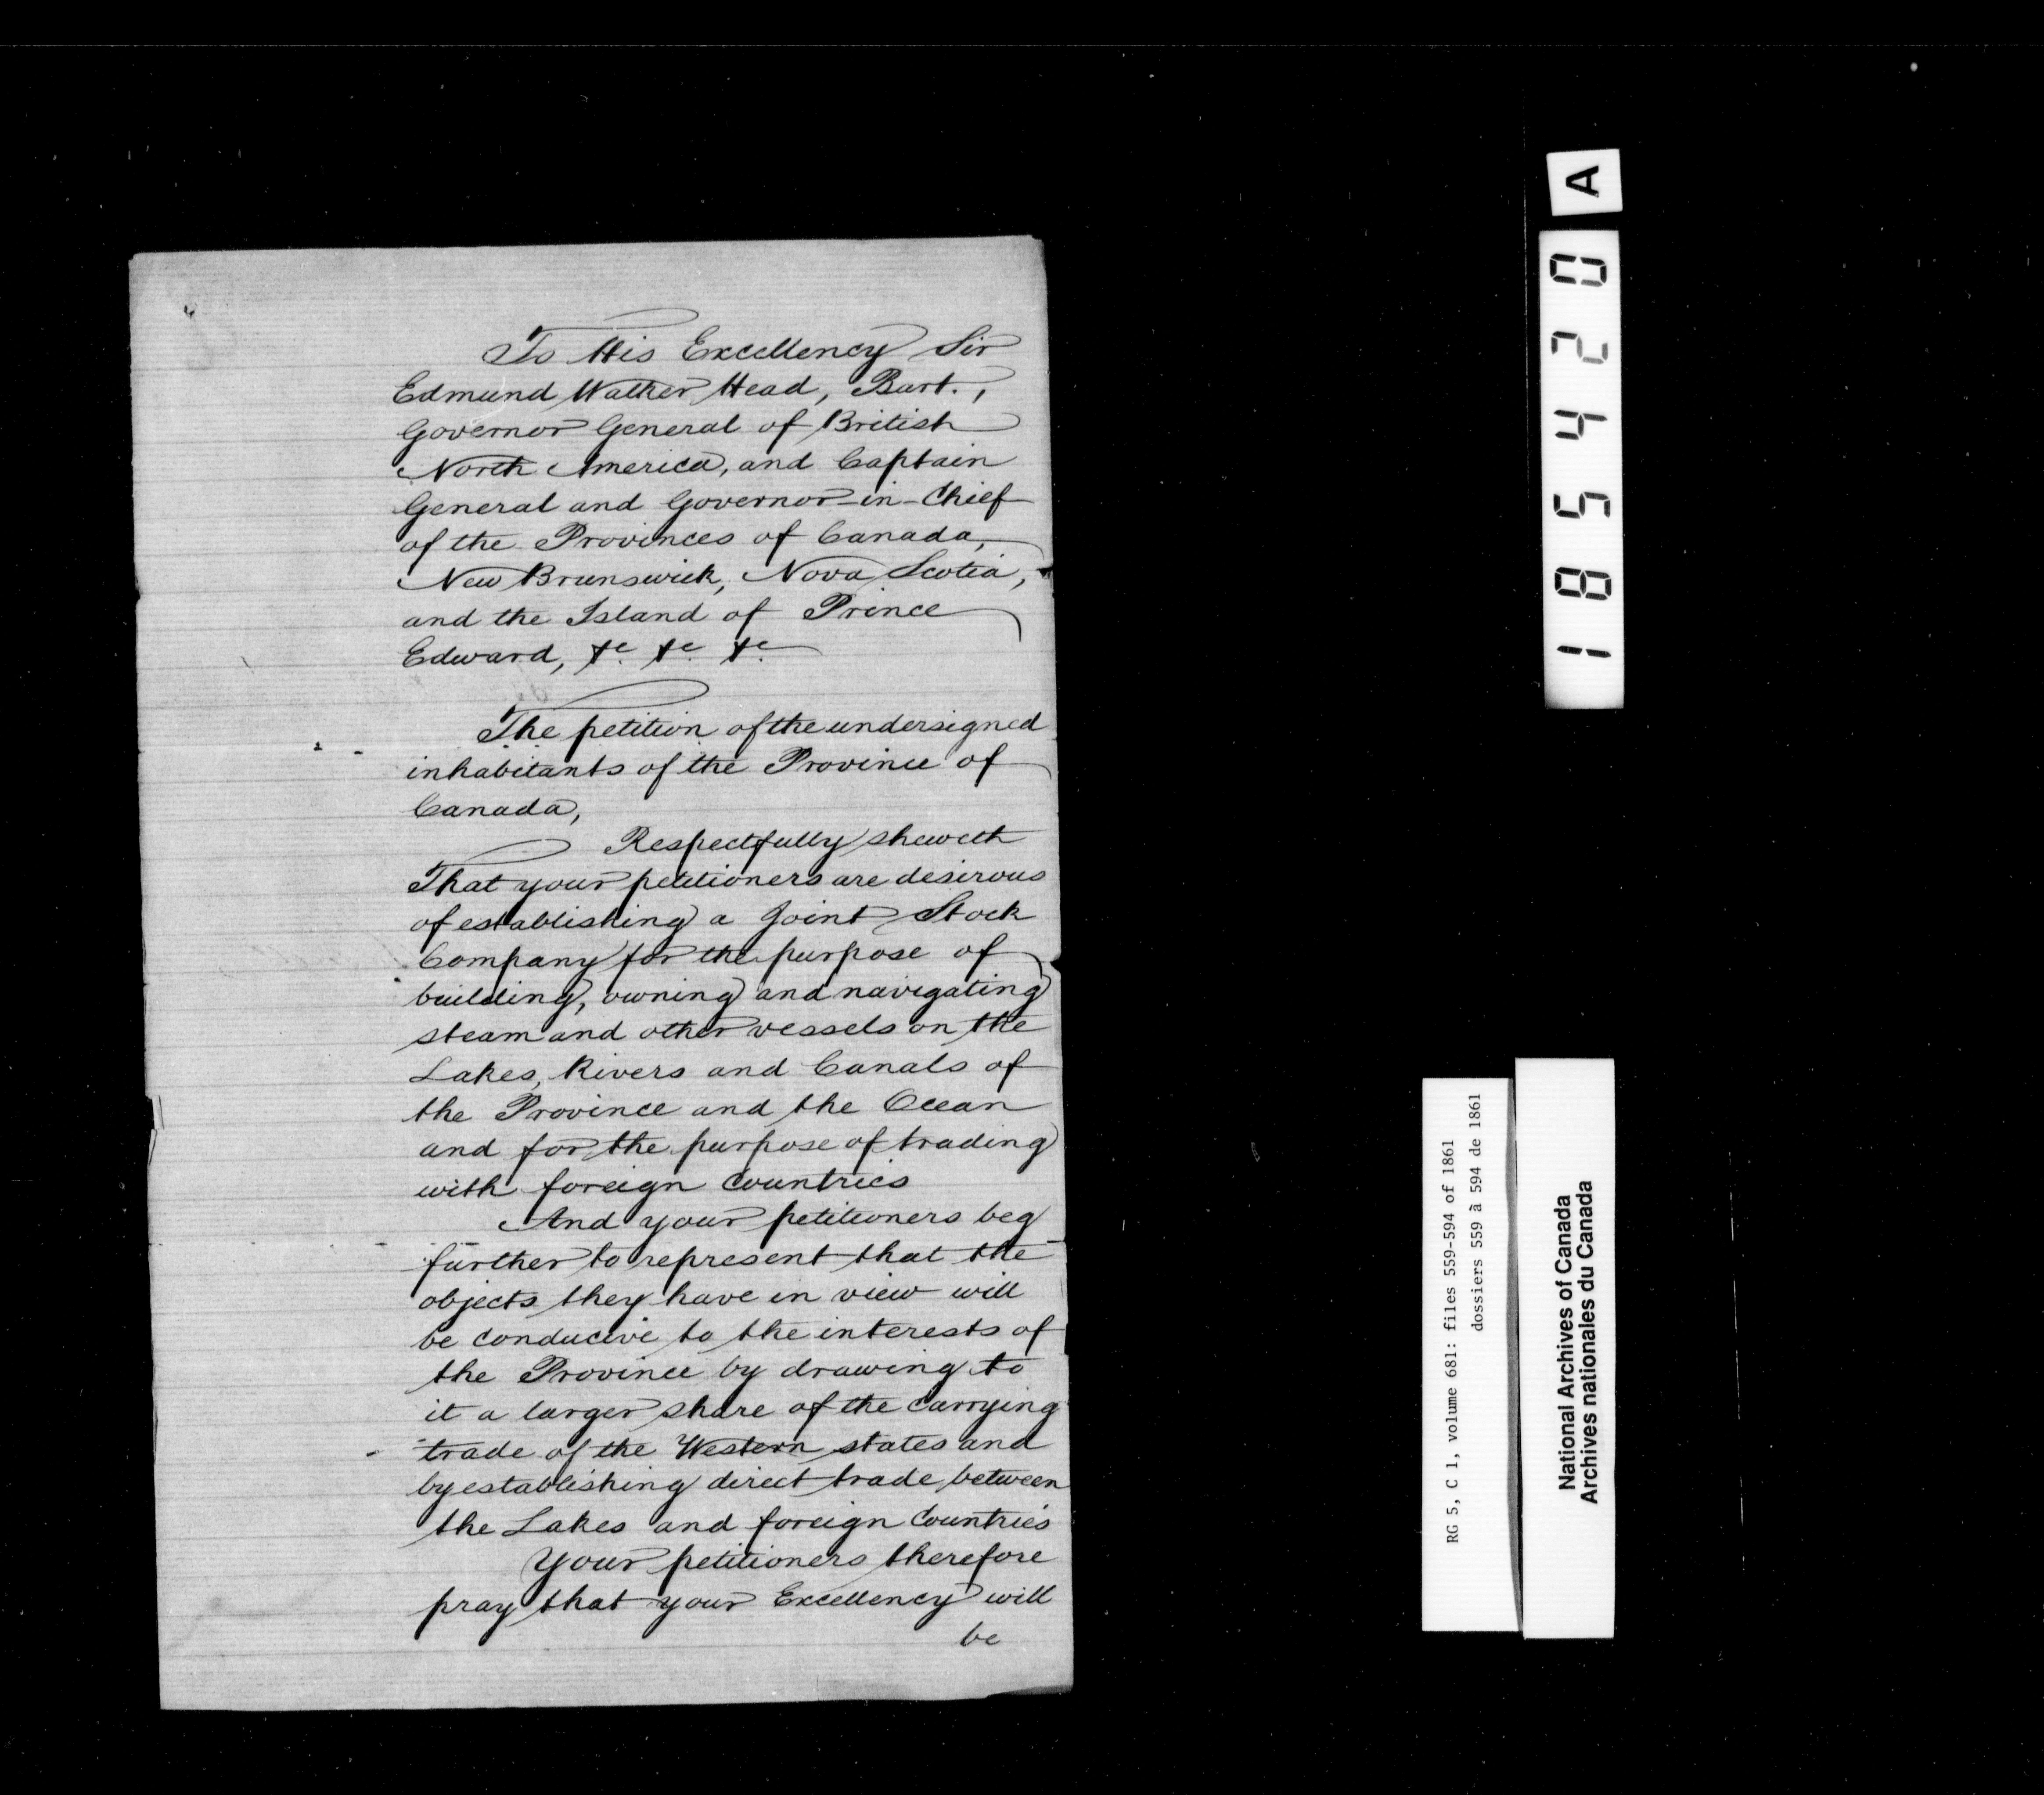 To His Excellency Sir
Edmund Walker Head, Bart.,
Governor General of British
North America, and Captain
General and Governor-in-Chief
of the Provinces of Canada,
New Brunswick, Nova Scotia,
and the Island of Prince
Edward, &c. &c. &c.
The petition of the undersigned
inhabitants of the Province of
Canada,
Respectfully sheweth
That your petitioners are desirous
of establishing a Joint Stock
Company for the purpose of
building, owning and navigating
steam and other vessels on the
Lakes, Rivers and Canals of
the Province and the Ocean
and for the purpose of trading
with foreign Countries
And your petitioners beg
further to represent that the
objects they have in view will
be conducive to the interests of
the Province by drawing to
it a larger share of the carrying
trade of the Western states and
by establishing direct trade between
the Lakes and foreign Countries
Your petitioners therefore
pray that your Excellency will
be
185420 A
RG 5, C 1, volume 681: files 559-594 of 1861
dossiers 559 à 594 de 1861
National Archives of Canada
Archives nationales du Canada